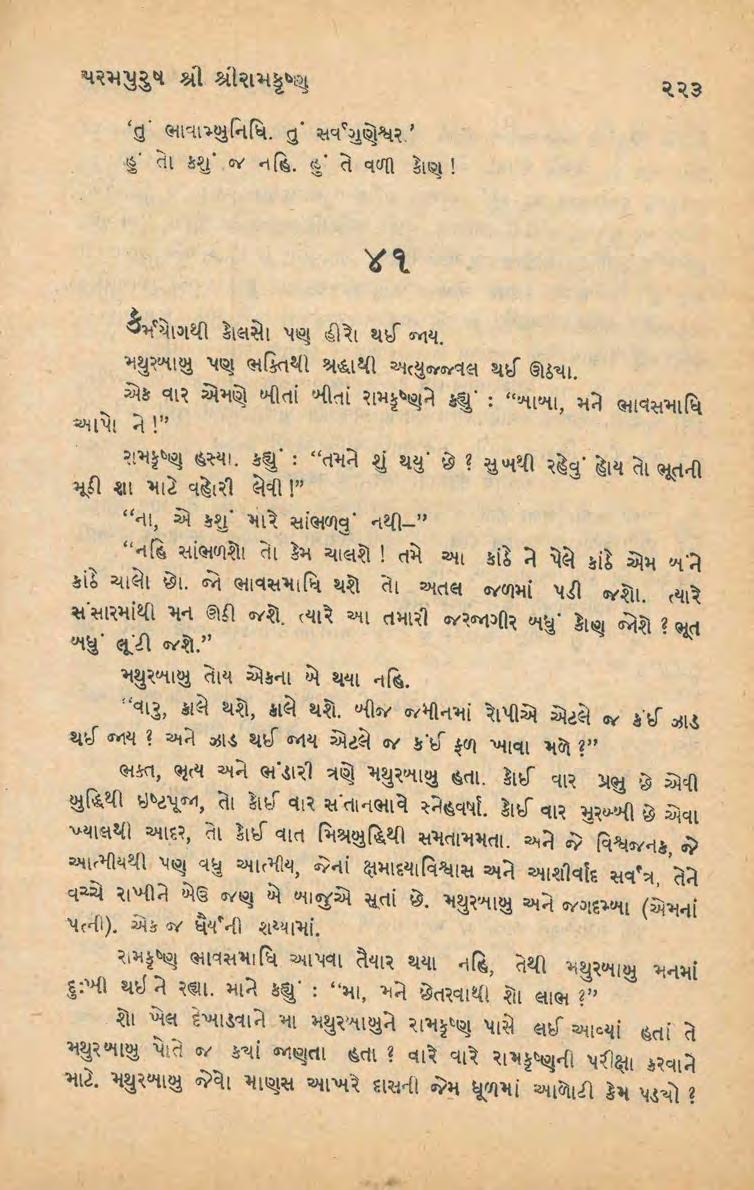 પરમપુરુષ શ્રી શ્રીરામકૃષ્ણ
૨૨૩
‘તું ભાવામ્બુનિધિ. તું સર્વગુણેશ્વર.’
હું તો કશું જ નહિ. હું તે વળી કોણ !
૪૧
કર્મયોગથી કોલસો પણ હીરો થઈ જાય.
મથુરબાબુ પણ ભક્તિથી શ્રદ્ધાથી અત્યુજ્જવલ થઈ ઊઠ્યા.
એક વાર એમણે બીતાં બીતાં રામકૃષ્ણને કહ્યું : “બાબા, મને ભાવસમાધિ
આપો ને !”
રામકૃષ્ણ હસ્યા. કહ્યું : “તમને શું થયું છે ? સુખથી રહેવું હોય તો ભૂતની
મૂઠી શા માટે વહોરી લેવી !”
“ના, એ કશું મારે સાંભળવું નથી–”
“નહિ સાંભળશો તો કેમ ચાલશે ! તમે આ કાંઠે ને પેલે કાંઠે એમ બંને
કાંઠે ચાલો છો. જો ભાવસમાધિ થશે તો અતલ જળમાં પડી જશો. ત્યારે
સંસારમાંથી મન ઊઠી જશે. ત્યારે આ તમારી જરજાગીર બધું કોણ જોશે ? ભૂત
બધું લૂંટી જશે.”
મથુરબાબુ તોય એકના બે થયા નહિ.
“વારુ, કાલે થશે, કાલે થશે. બીજ જમીનમાં રોપીએ એટલે જ કંઈ ઝાડ
થઈ જાય ? અને ઝાડ થઈ જાય એટલે જ કંઈ ફળ ખાવા મળે ?”
ભક્ત, ભૃત્ય અને ભંડારી ત્રણે મથુરબાબુ હતા. કોઈ વાર પ્રભુ છે એવી
બુદ્ધિથી ઇષ્ટપૂજા, તો કોઈ વાર સંતાનભાવે સ્નેહવર્ષા. કોઈ વાર મુરબ્બી છે એવા
ખ્યાલથી આદર, તો કોઈ વાત મિશ્રબુદ્ધિથી સમતામમતા. અને જે વિશ્વજનક, જે
આત્મીયથી પણ વધુ આત્મીય, જેનાં ક્ષમાદયાવિશ્વાસ અને આશીર્વાદ સર્વત્ર, તેને
વચ્ચે રાખીને બેઉ જણ બે બાજુએ સૂતાં છે. મથુરબાબુ અને જગદમ્બા (એમનાં
પત્ની). એક જ ધૈર્યની શય્યામાં.
રામકૃષ્ણ ભાવસમાધિ આપવા તૈયાર થયા નહિ, તેથી મથુરબાબુ મનમાં
દુ:ખી થઈ ને રહ્યા. માને કહ્યું : “મા, મને છેતરવાથી શો લાભ ?”
શો ખેલ દેખાડવાને મા મથુરબાબુને રામકૃષ્ણ પાસે લઈ આવ્યાં હતાં તે
મથુરબાબુ પોતે જ કયાં જાણતા હતા ? વારે વારે રામકૃષ્ણની પરીક્ષા કરવાને
માટે. મથુરબાબુ જેવો માણસ આખરે દાસની જેમ ધૂળમાં આળોટી કેમ પડ્યો ?